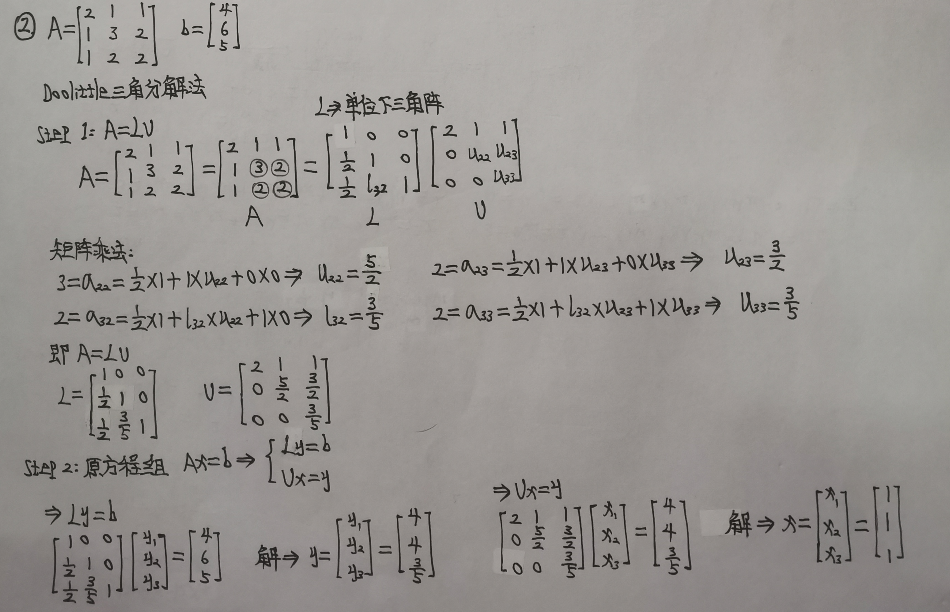 ② A=[2 1 1; 1 3 2; 1 2 2] b=[4; 6; 5]
Doolittle三角分解法
L⇒单位下三角阵
Step 1: A=LU
A=[2 1 1; 1 3 2; 1 2 2]=[2 1 1; 1 ③ ②; 1 ② ②]=[1 0 0; 1/2 1 0; 1/2 l₃₂ 1][2 1 1; 0 u₂₂ u₂₃; 0 0 u₃₃]
A L U
矩阵乘法:
3=a₂₂=1/2×1+1×u₂₂+0×0⇒ u₂₂=5/2 2=a₂₃=1/2×1+1×u₂₃+0×u₃₃⇒ u₂₃=3/2
2=a₃₂=1/2×1+l₃₂×u₂₂+1×0⇒ l₃₂=3/5 2=a₃₃=1/2×1+l₃₂×u₂₃+1×u₃₃⇒ u₃₃=3/5
即 A=LU
L=[1 0 0; 1/2 1 0; 1/2 3/5 1] U=[2 1 1; 0 5/2 3/2; 0 0 3/5]
Step 2: 原方程组 Ax=b⇒{Ly=b; Ux=y
⇒Ly=b
[1 0 0; 1/2 1 0; 1/2 3/5 1][y₁; y₂; y₃]=[4; 6; 5] 解⇒ y=[y₁; y₂; y₃]=[4; 4; 3/5]
⇒Ux=y
[2 1 1; 0 5/2 3/2; 0 0 3/5][x₁; x₂; x₃]=[4; 4; 3/5] 解⇒ x=[x₁; x₂; x₃]=[1; 1; 1]